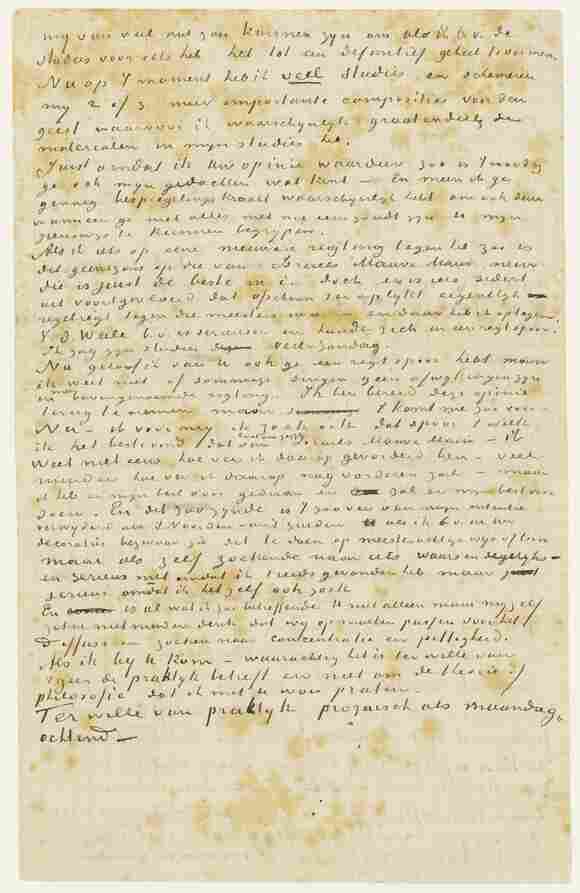 my van veel nut zou kunnen zyn om als ik b.v. de
studies voor iets heb het tot een definitief geheel te vormen.
Nu op 't moment heb ik veel studies en schemeren
my 2 of 3 meer importante composities voor den
geest waarvoor ik waarschynlyk grootendeels de
materialen in myn studies heb.
Juist omdat ik Uw opinie waardeer zoo is 't noodig
ge ook myn gedachten wat kent — En meen ik ge
genoeg bespiegelings kracht waarschynlyk hebt om ook dan
wanneer ge niet alles met me eens zoudt zyn  myn
zienswyze te kunnen begrypen.
Als ik iets op eene nieuwere rigting tegen heb zoo is
dit geenszins op die van Israels Mauve Maris, neen
die is juist de beste m.i. doch er is iets sedert
uit voortgevloeid dat ofschoon ser op lykt eigentlyk
regelregt tegen die meesters  en daar heb ik op tegen.
V.d. Weele b.v. is serieus en houdt zich in een regt spoor.
Ik zag zyn studies verl. Zondag.
Nu geloof ik van U ook ge een regt spoor hebt maar
ik weet niet of sommige dingen geen afwykingen zyn
en  bovengenoemde rigting. Ik ben bereid deze opinie
terug te nemen maar 't komt me zoo voor.
Nu — ik voor my ik zoek ook dat spoor 't welk
ik het best vind, dat van Israels Mauve Maris — ik
weet niet eens hoe ver ik daar op gevorderd ben — veel
minder hoe ver ik daarop nog vorderen zal — maar
ik heb er myn best voor gedaan en zal er myn best voor
doen. En dit zoo zynde is 't zoo ver van myn intentie
verwyderd als 't Noorden van 't Zuiden als ik b.v. in Uw
decoraties bezwaar zie dit te doen op meesterachtige wys of toon
maar als zelf zoekende naar iets waars en degelyks —
en serieus niet omdat ik reeds gevonden heb maar
serieus omdat ik het zelf ook zoek
En is al wat ik zoo betreffende U niet alleen maar myzelf
zoo met minder denk dat wy oppassen passen voor het
Diffuse en zoeken naar concentratie en pittigheid.
Als ik by U kom — waarachtig het is ter wille van
 de praktyk betreft en niet om de theorie of
philosofie dat ik met U wou praten.
Ter wille van praktyk prozaisch als maandag
ochtend —